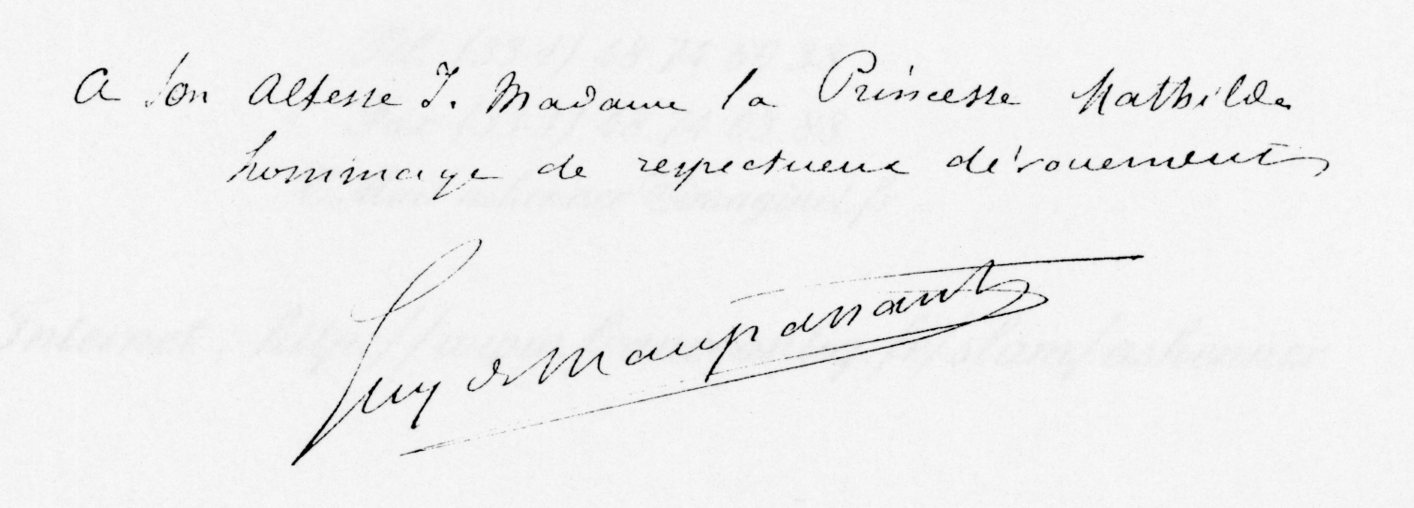 A Son Altesse I. Madame la Princesse Mathilde
hommage de respectueux dévouement
Guy de Maupassant